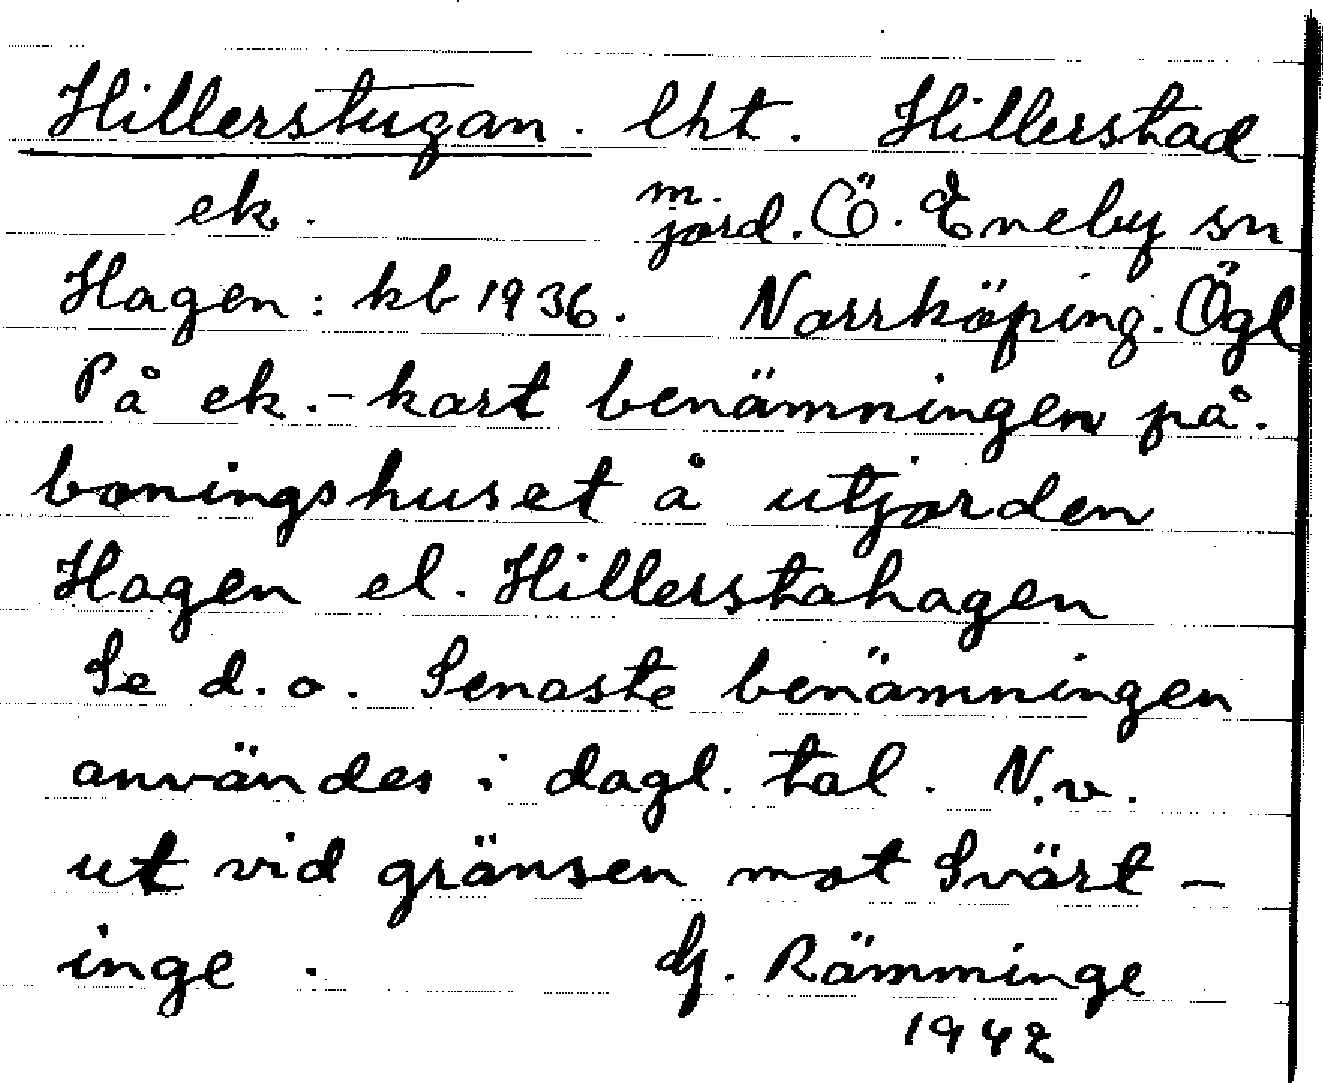 Hillerstugan. lht. Hillerstad
ek. m. jord. Ö. Eneby sn
Hagen: kb 1936. Norrköping. Ögl
På ek.-kart benämningen på
boningshuset å utjorden
Hagen el. Hillerstahagen
Se d.o. Senaste benämningen
användes i dagl. tal. N.v.
ut vid gränsen mot Svärt-
inge. G. Rämminge
1942